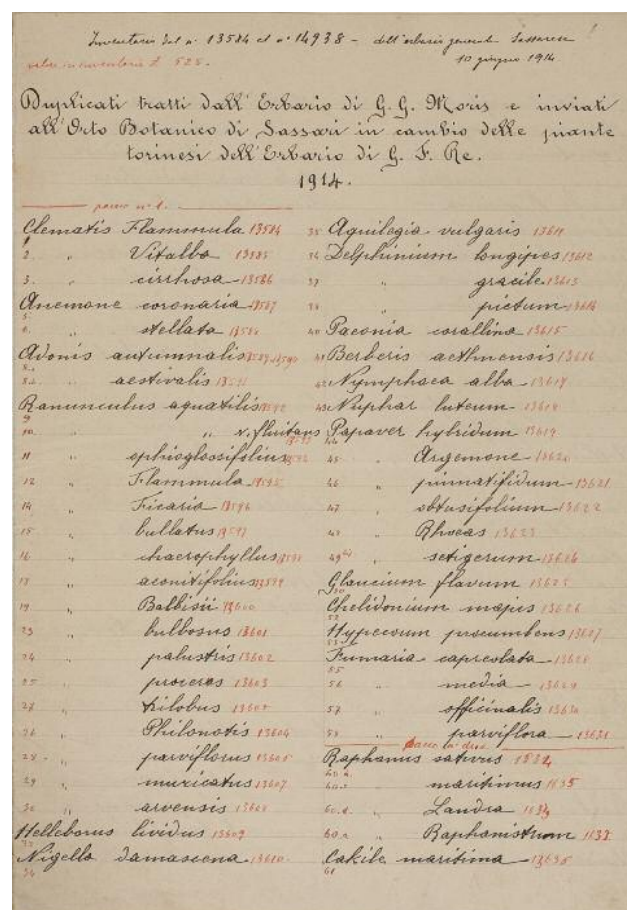 Inventario dal n° 13584 al n° 14938 - dell'erbario generale Sassarese
10 giugno 1914.
525.
Duplicati tratti dall'Erbario di G. G. Moris e inviati
all'Orto Botanico di Sassari in cambio delle piante
torinesi dell'Erbario di G. F. Re.
1914.
pacco n° 1.
Clematis Flammula 13584
2. " Vitalba 13585
3. " cirrhosa 13586
Anemone coronaria 13587
6. " stellata 13588
Adonis autumnalis 13589, 13590
" aestivalis 13591
Ranunculus aquatilis 13592
9
10 " " v. fluitans
13593
11 ophioglossifolius 13594
12 " Flammula 13595
14 " Ficaria 13596
15 " bullatus 13597
16 " chaerophyllus 13598
18 " aconitifolius 13599
19 " Balbisii 13600
23 " bulbosus 13601
24 " palustris 13602
25 " procerus 13603
27 " trilobus
26 " Philonotis 13604
28 " parviflorus
29 " muricatus 13607
30 " arvensis 13608
Helleborus lividus 13609
Nigella damascena 13610
34
35 Aquilegia vulgaris 13611
Delphinium longipes 13612
37 " gracile 13613
38 " pictum 13614
40 Paeonia corallina 13615
41 Berberis aethnensis 13616
42 Nymphaea alba 13617
43 Nuphar luteum 13618
Papaver hybridum 13619
44
45 " Argemone 13620
46 " pinnatifidum 13621
47 " obtusifolium 13622
48 " Rhoeas 13623
49 " setigerum
Glaucium flavum 13625
50
Chelidonium majus 13626
52
Hypecoum procumbens 13627
53
Fumaria capreolata 13628
55
56 " media 13629
57 " officinalis 13630
58 " parviflora 13631
pacco n° due
Raphanus sativus
60.a.
maritimus
60.d. " Landra
" Raphanistrum
Cakile maritima 13636
61